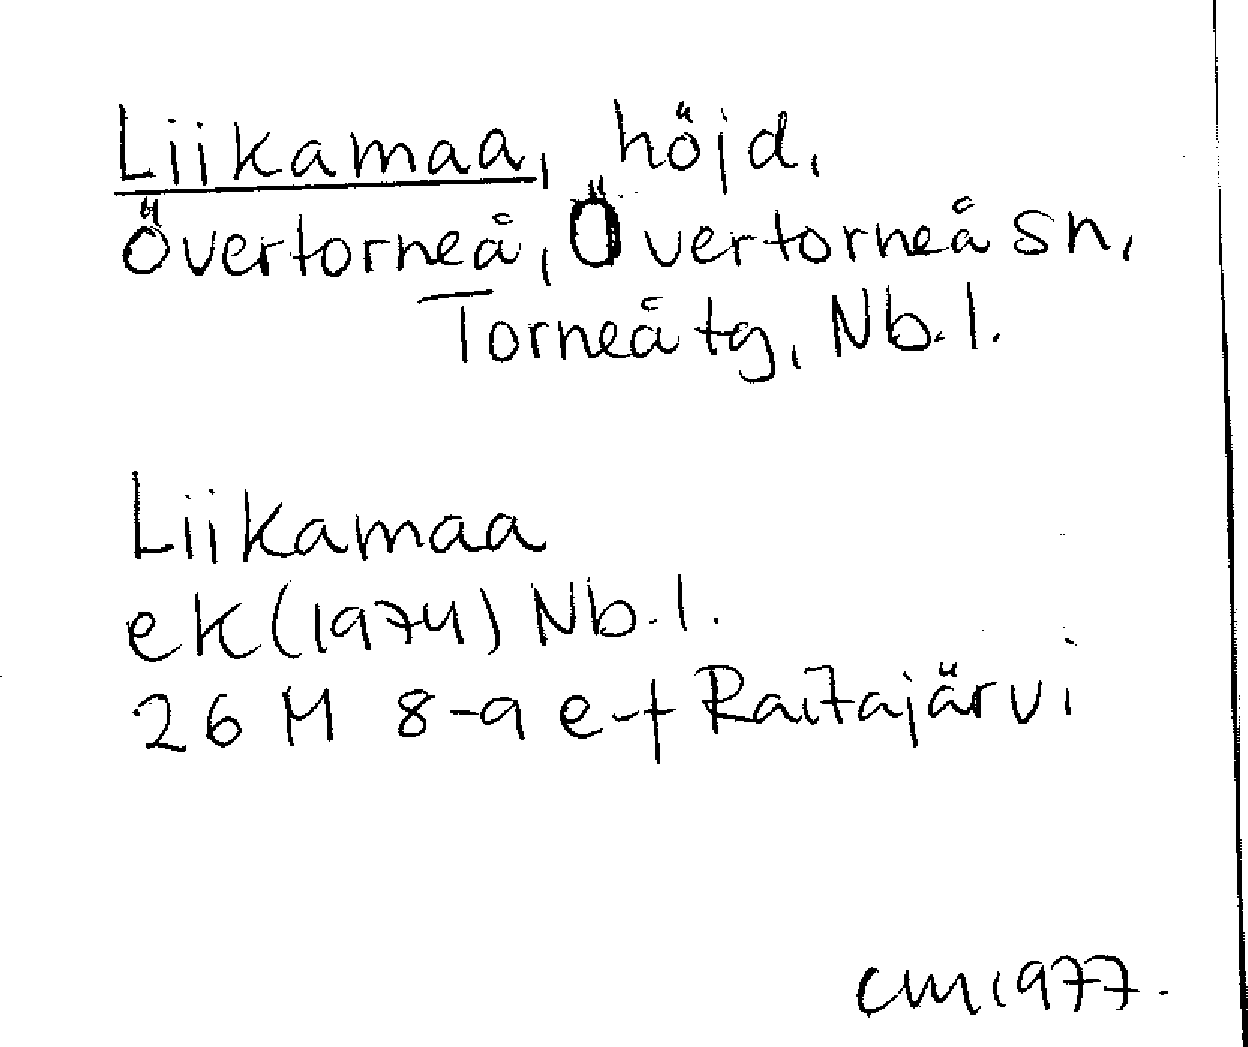 Liikamaa, höjd,
Övertorneå, Övertorneå sn,
Torneå tg, Nb. l.
Liikamaa
ek (1974) Nb. l.
26 M 8-9 e-f Raitajärvi
CM 1977.